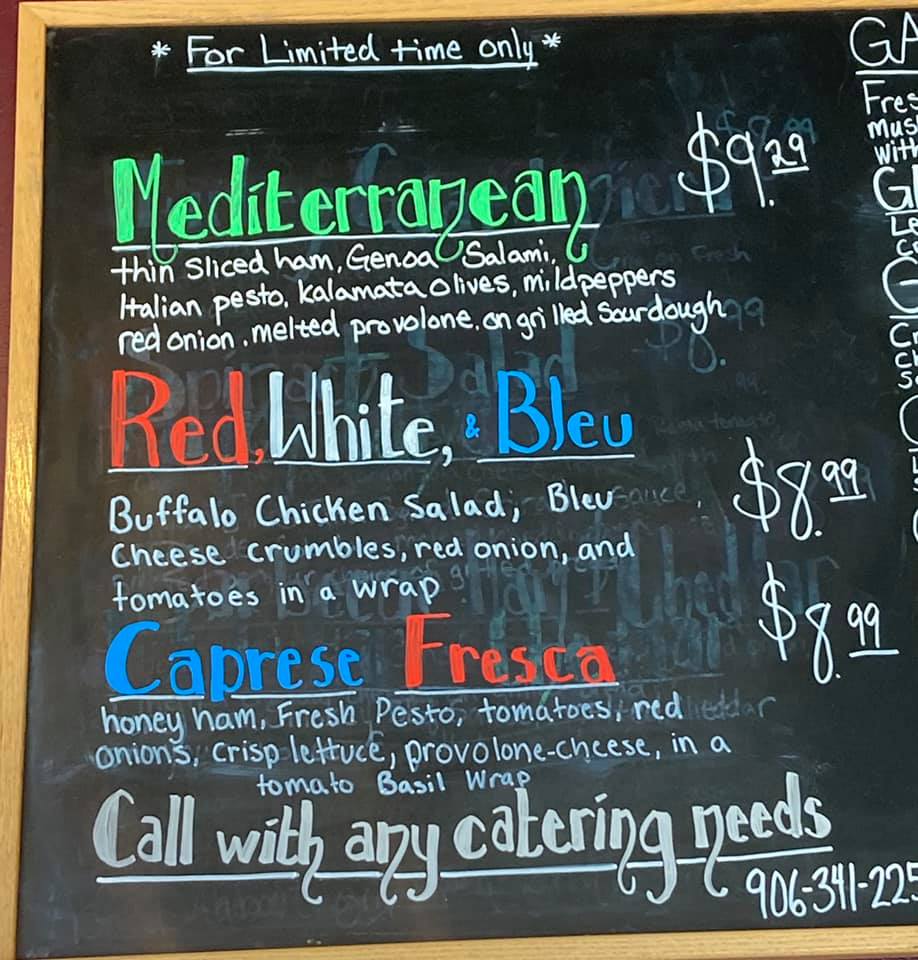 * For Limited time only *
Mediterranean $9.29
thin sliced ham, Genoa Salami,
Italian pesto, kalamata olives, mild peppers
red onion, melted provolone, on grilled Sourdough
Red, White, & Bleu
$8.99
Buffalo Chicken Salad, Bleu
Cheese crumbles, red onion, and
tomatoes in a wrap
Caprese Fresca $8.99
honey ham, Fresh Pesto, tomatoes, red
onions, crisp lettuce, provolone-cheese, in a
tomato Basil Wrap
Call with any catering needs
906-341-225
GA
Fres
mus
with